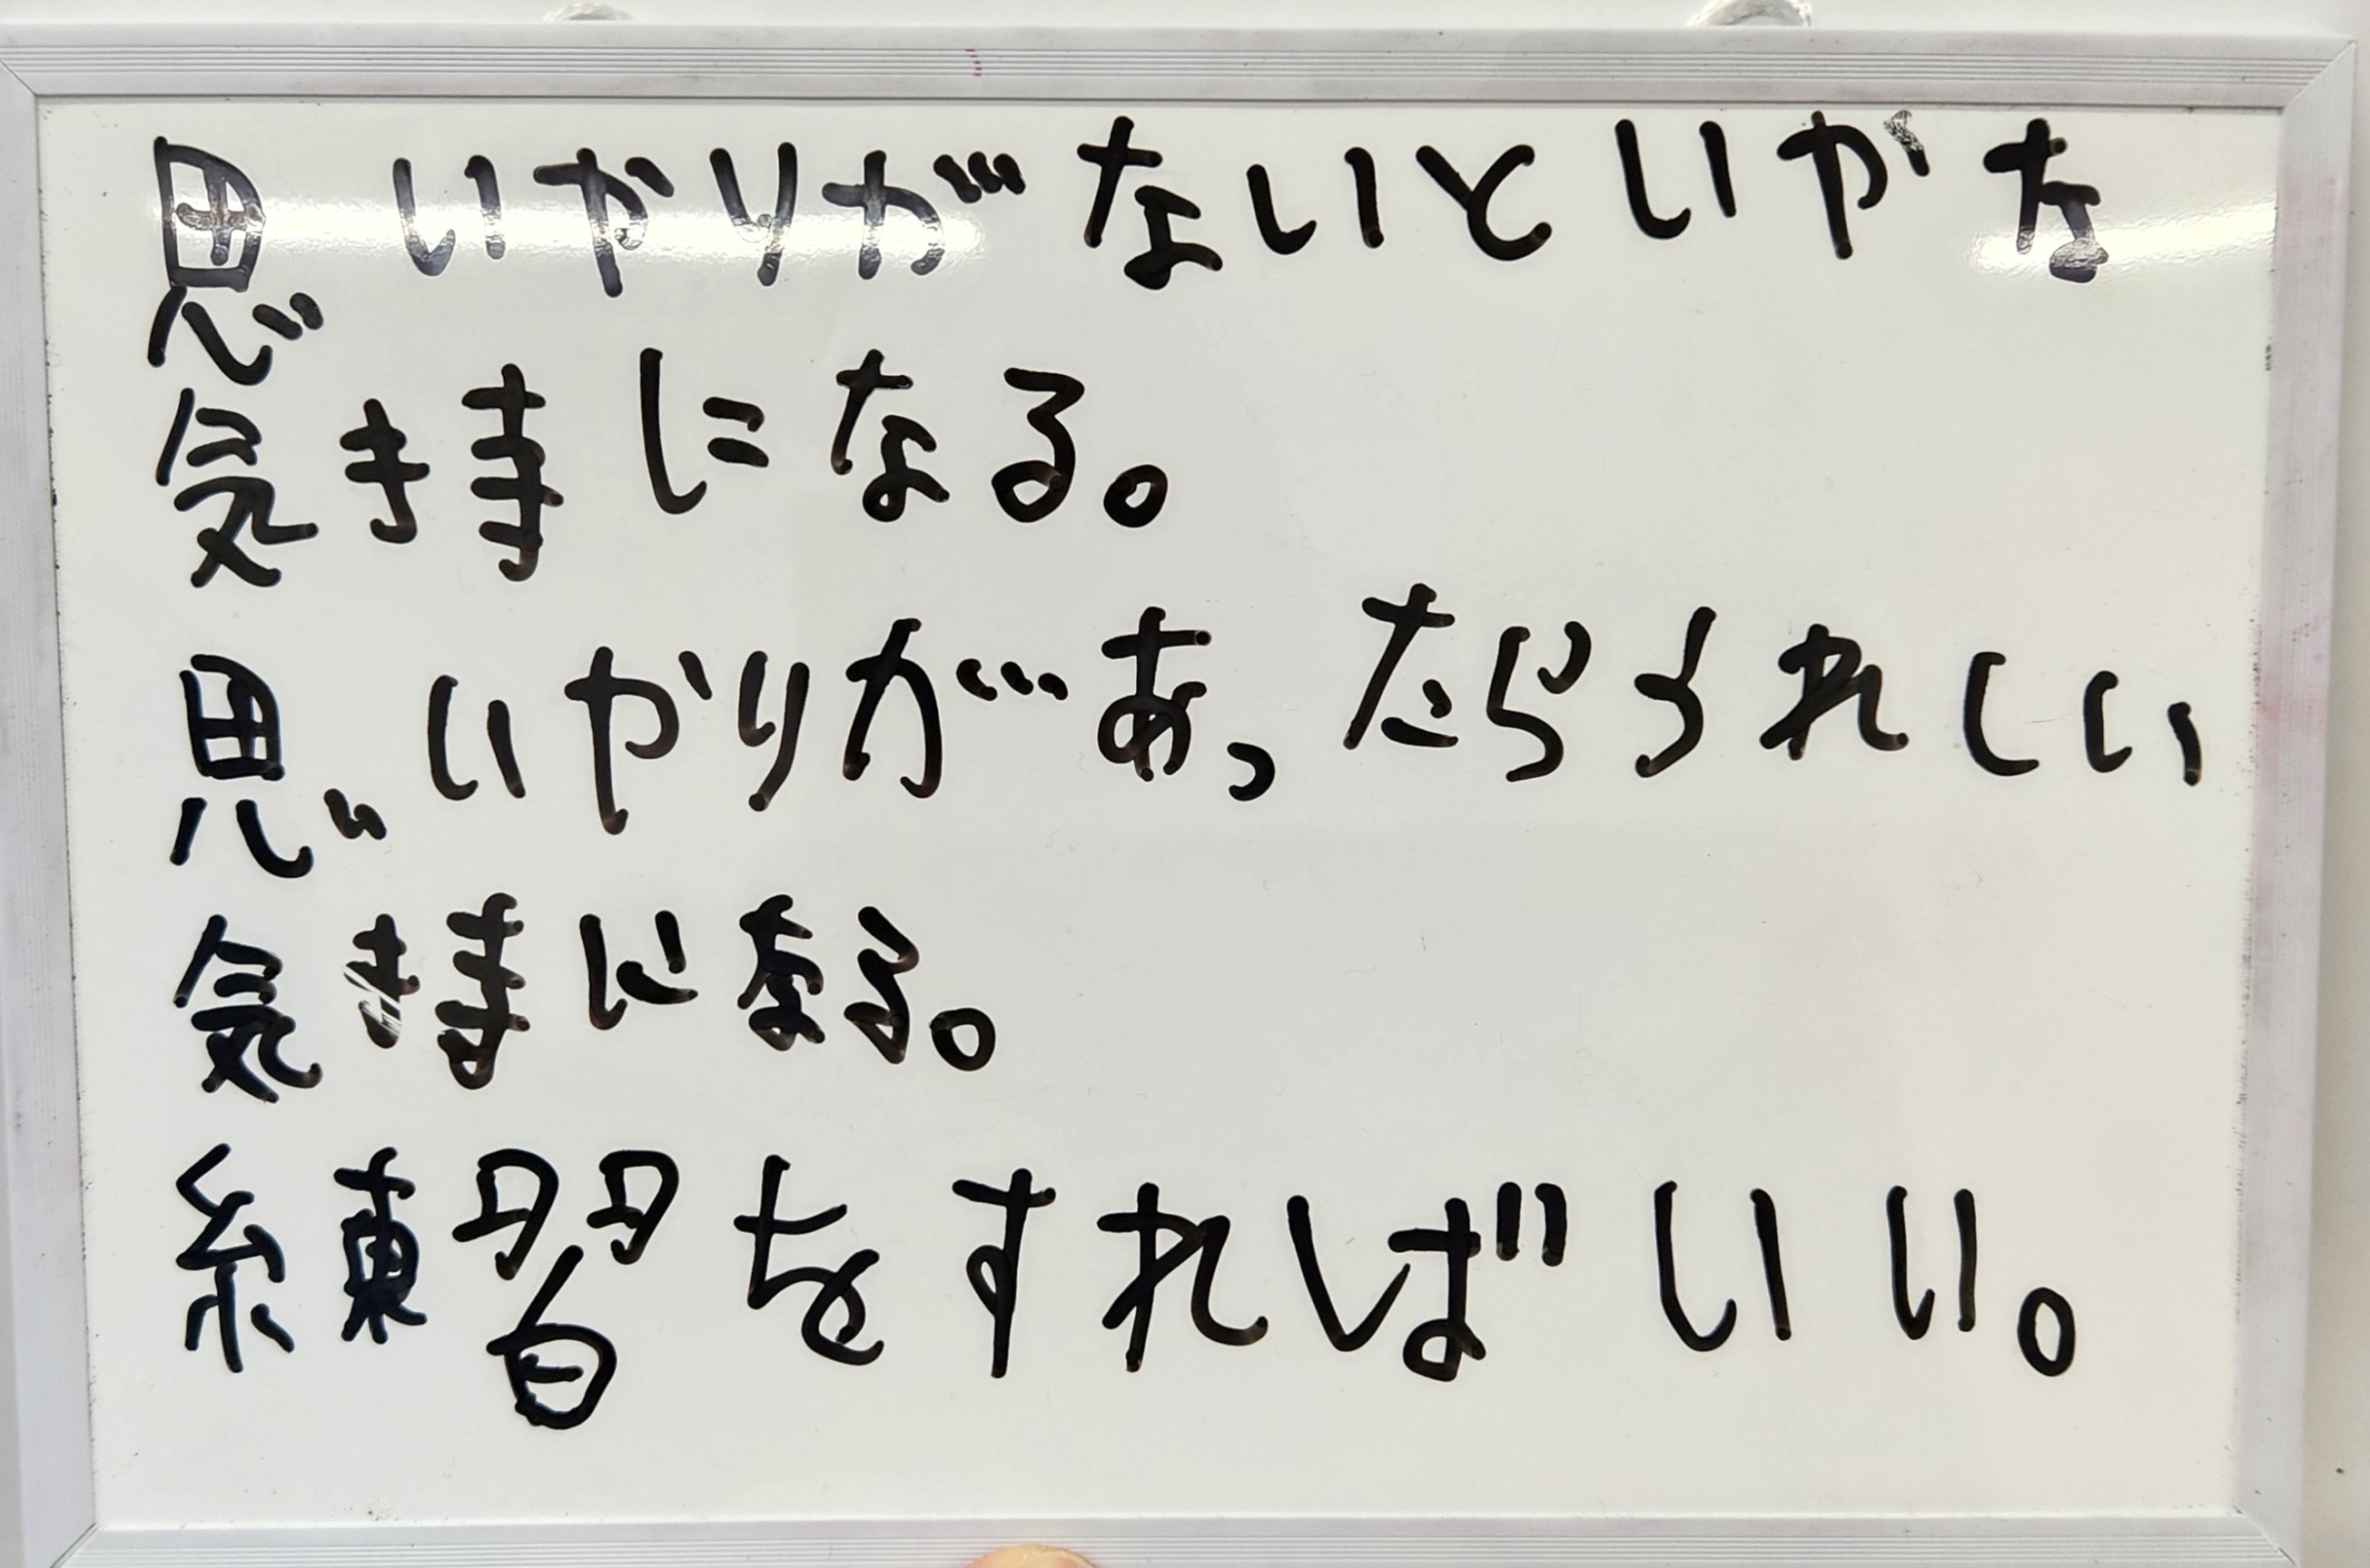 思いやりがないといやな
気持になる。
思いやりがあったらうれしい
気持になる。
練習をすればいい。